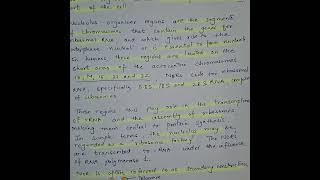 of the cell
Nucleolus organiser regions are the segments
of chromosomes that contain the genes for
ribosomal RNA and which gives rise to the
interphase nucleoli or is essential to form nucleoli
In humans, these regions are located on the
short arms of the acrocentric chromosomes
13, 14, 15, 21 and 22. NORs code for ribosomal
RNA, specifically 5.8S, 18S and 28S RNA
of ribosomes
These regions thus play role in the transcription
of rRNA and the assembly of ribosomes
making them central to protein synthesis.
In simple terms the nucleolus may be
regarded as a ribosome factory. The NORs
are transcribed to RNA under the influence
of RNA polymerase I.
NOR is often referred to as secondary constriction